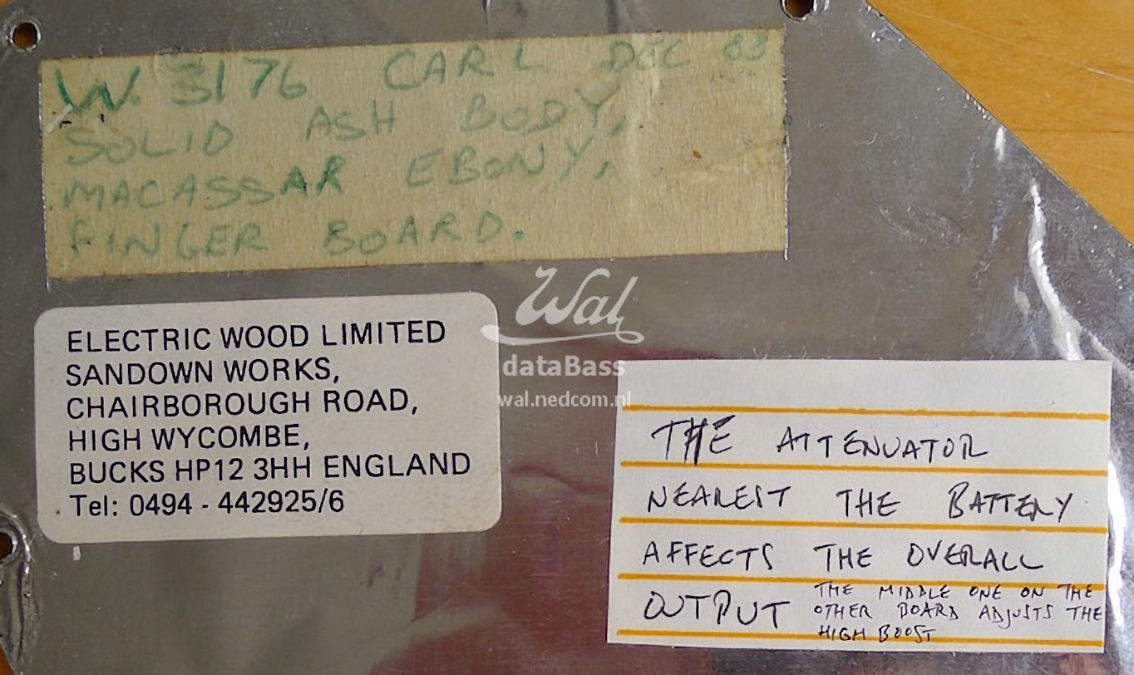 W. 3176 CARL DEC 83
SOLID ASH BODY,
MACASSAR EBONY,
FINGER BOARD.
ELECTRIC WOOD LIMITED
SANDOWN WORKS,
CHAIRBOROUGH ROAD,
HIGH WYCOMBE,
BUCKS HP12 3HH ENGLAND
Tel: 0494 - 442925/6
Wal
dataBass
wal.nedcom.nl
THE ATTENUATOR
NEAREST THE BATTERY
AFFECTS THE OVERALL
OUTPUT
THE MIDDLE ONE ON THE
OTHER BOARD ADJUSTS THE
HIGH BOOST